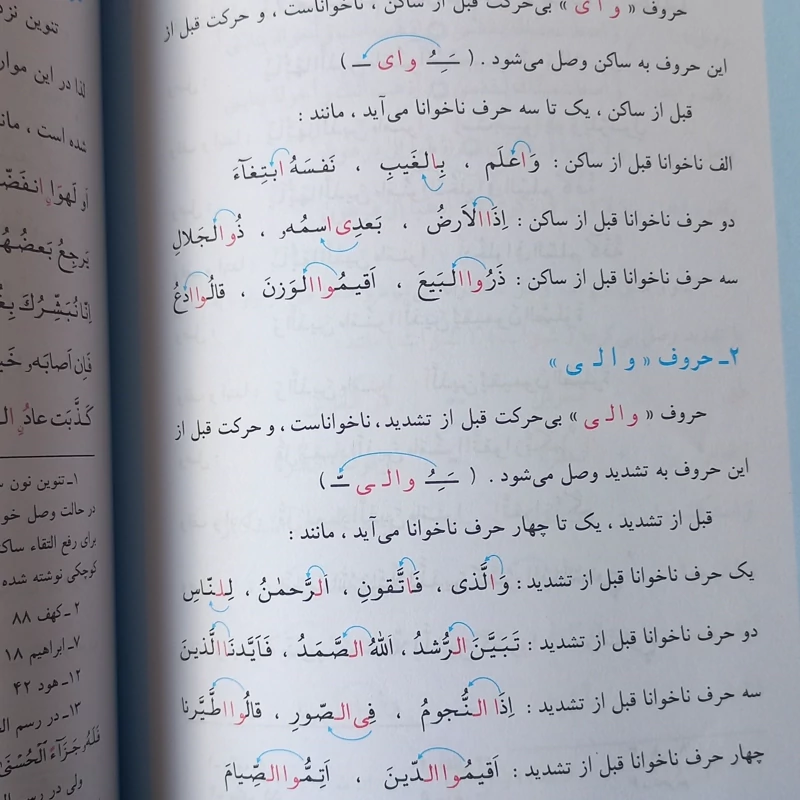 حروف « و ا ی » بی‌حرکت قبل از ساکن ، ناخواناست ، و حرکت قبل از
این حروف به ساکن وصل می‌شود . ( ـَـِـُ و ا ی ـْ )
قبل از ساکن ، یک تا سه حرف ناخوانا می‌آید ، مانند :
الف ناخوانا قبل از ساکن : وَاعْلَم ، بِالْغَیبِ ، نَفسَهُ ابْتِغَآءَ
دو حرف ناخوانا قبل از ساکن : اِذَا الْاَرضُ ، بَعدِی اسمُهُر ، ذُوالْجَلالِ
سه حرف ناخوانا قبل از ساکن : ذَرُوا الْبَیعَ ، اَقیمُوا الْوَزنَ ، قالُوا ادْعُ
۲ـ حروف « و ا لـ ی »
حروف « و ا لـ ی » بی‌حرکت قبل از تشدید ، ناخواناست ، و حرکت قبل از
این حروف به تشدید وصل می‌شود . ( ـَـِـُ و ا لـ ی ـّ )
قبل از تشدید ، یک تا چهار حرف ناخوانا می‌آید ، مانند :
یک حرف ناخوانا قبل از تشدید : وَالَّذی ، فَاتَّقونِ ، اَلرَّحمٰنُ ، لِلنّاسِ
دو حرف ناخوانا قبل از تشدید : تَبَیَّنَ الرُّشدُ ، اَللهُ الصَّمَدُ ، فَاَیَّدنَا الَّذینَ
سه حرف ناخوانا قبل از تشدید : اِذَا النُّجومُ ، فِی الصّورِ ، قالُوا اطَّیَّرنا
چهار حرف ناخوانا قبل از تشدید : اَقیمُوا الدّینَ ، اَتِمُّوا الصِّیامَ
تنوین نزد
لذا در این موار
شده است ، مانن
اَو لَهوَا ِانفَضّ
یَرجِعُ بَعضُهُ
اِنّا نُبَشِّرُكَ بِغُ
فَاِن اَصابَهُر خَی
کَذَّبَت عادُ ِ ال
۱ـ تنوین نون س
در حالت وصل خو
برای رفع التقاء ساک
کوچکی نوشته شده
۲ـ کهف ۸۸
۷ـ ابراهیم ۱۸
۱۲ـ هود ۴۲
۱۳ـ در رسم ال
فَلَهُر جَزَآءً الْحُسنَیٰ
ولی در رسم